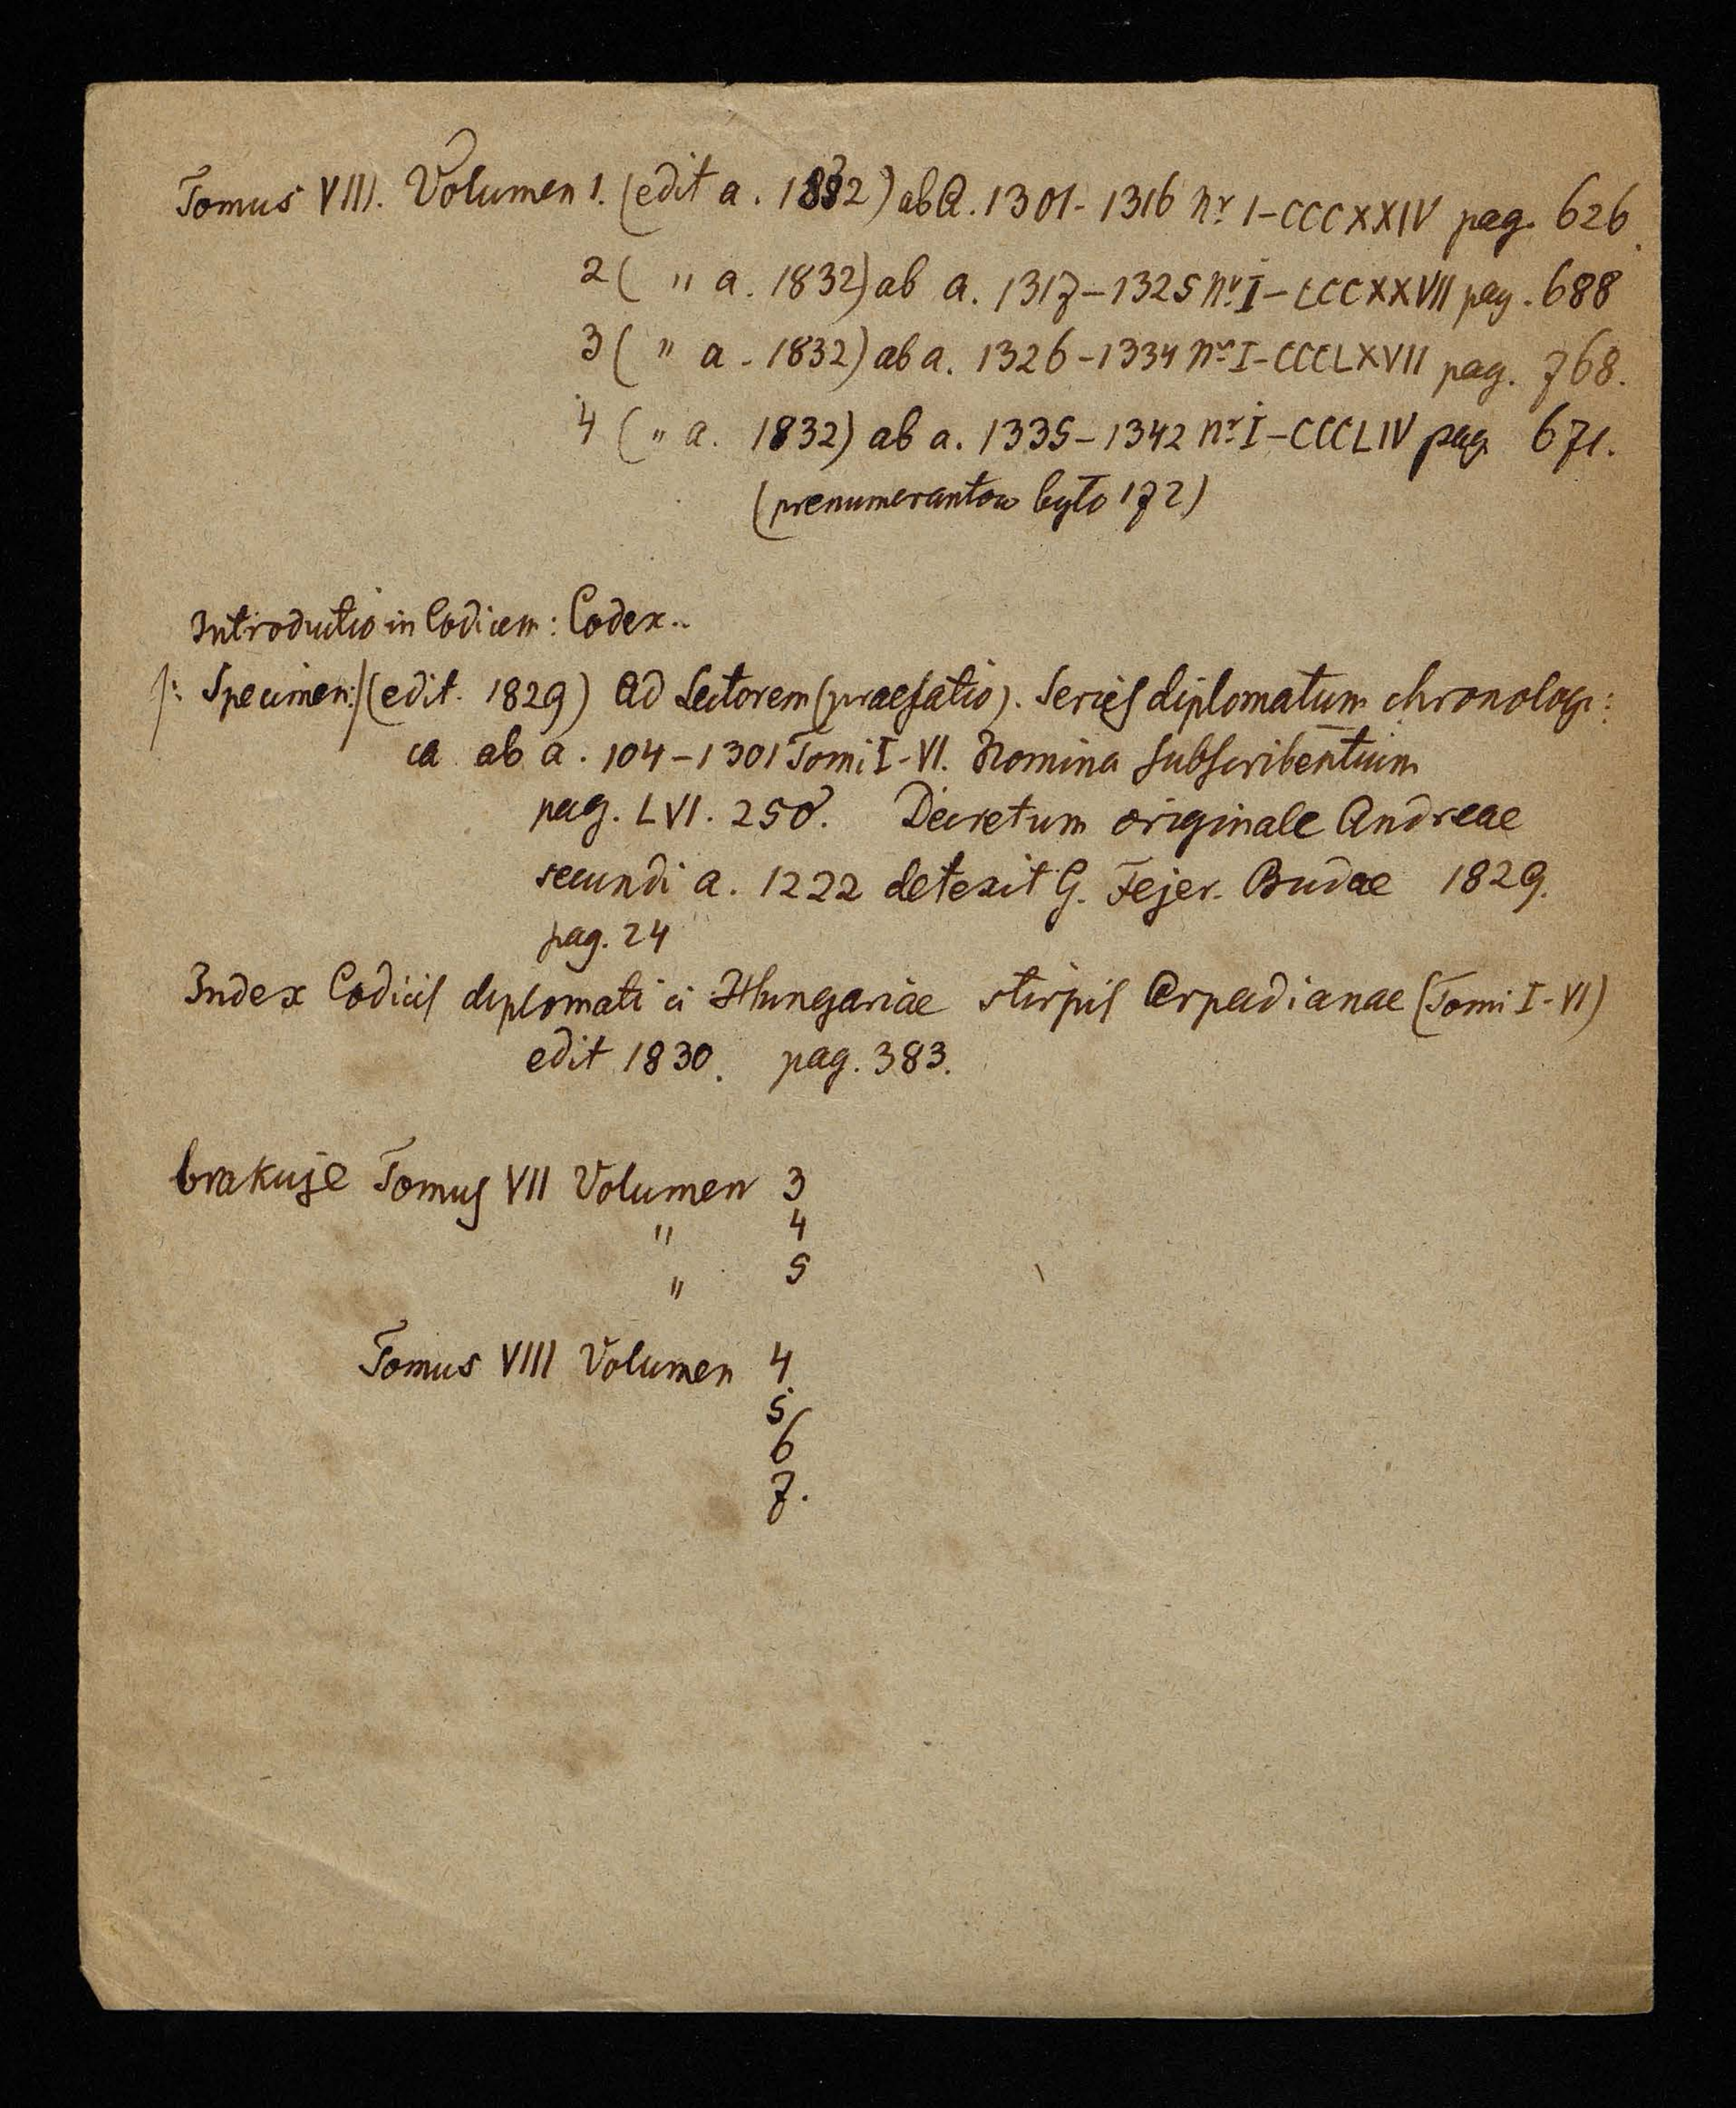 Tomus VIII. Volumen 1. (edit a. 1832) ab a. 1301-1316 nr I-CCCXXIV pag. 626.
2 ( " a. 1832) ab a. 1317-1325 nr I-CCCXXVII pag. 688
3 ( " a. 1832) ab a. 1326-1334 nr I-CCCLXVII pag. 768.
4 ( " a. 1832) ab a. 1335-1342 nr I-CCCLIV pag 671.
(prenumerantow było 172)
Introductio in Codicem: Codex..
/: Specimen:/ (edit. 1829) Ad Lectorem (praefatio). Series diplomatum chronologi:
ca ab a. 104-1301 Tomi I-VI. Nomina subscribentium
pag. LVI. 250. Decretum originale Andreae
secundi a. 1222 detexit G. Fejer. Budae 1829.
pag. 24
Index Codicis diplomatici Hungariae stirpis Arpadianae (Tomi I-VI)
edit 1830. pag. 383.
brakuje Tomus VII Volumen 3
" 4
" 5
Tomus VIII Volumen 4.
5
6
7.